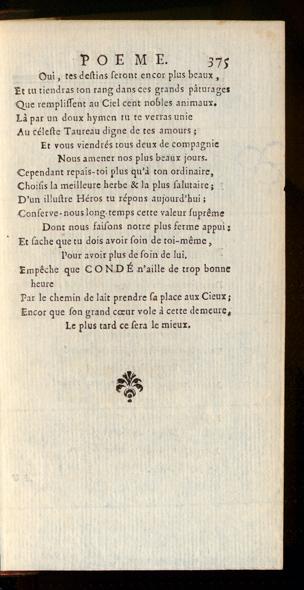 POEME. 375
Oui, tes destins seront encor plus beaux,
Et tu tiendras ton rang dans ces grands pâturages
Que remplissent au Ciel cent nobles animaux.
Là par un doux hymen tu te verras unie
Au céleste Taureau digne de tes amours;
Et vous viendrés tous deux de compagnie
Nous amener nos plus beaux jours.
Cependant repais-toi plus qu'à ton ordinaire,
Choisis la meilleure herbe & la plus salutaire;
D'un illustre Héros tu répons aujourd'hui;
Conserve-nous long-temps cette valeur suprême
Dont nous faisons notre plus ferme appui;
Et sache que tu dois avoir soin de toi-même,
Pour avoir plus de soin de lui.
Empêche que CONDÉ n'aille de trop bonne
heure
Par le chemin de lait prendre sa place aux Cieux;
Encor que son grand cœur vole à cette demeure,
Le plus tard ce sera le mieux.